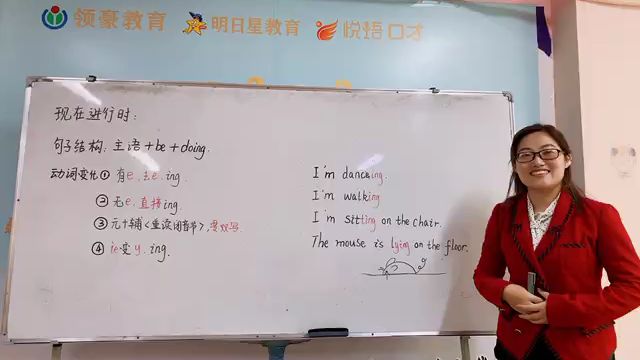 领豪教育 明日星教育 悦悟口才
现在进行时:
句子结构: 主语+be+doing.
动词变化① 有e,去e,ing.
② 无e,直接ing.
③ 元+辅<重读闭音节>,要双写.
④ ie变y.ing.
I'm dancing.
I'm walking
I'm sitting on the chair.
The mouse is lying on the floor.